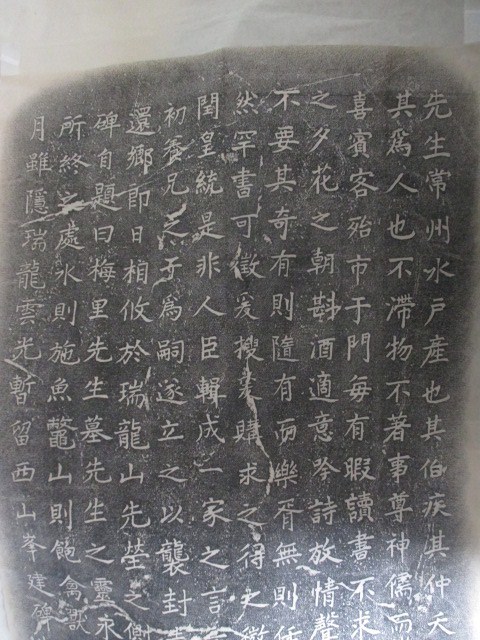 先生常州水戶產也其伯疾其仲夭
其爲人也不滯物不著事尊神儒而
喜賓客殆市于門每有暇讀書不求
之夕花之朝斟酒適意吟詩放情聲
不要其奇有則隨有而樂胥無則任
然罕書可徵爰搜爰購求之得之微
閏皇統是非人臣輯成一家之言
初養兄之子爲嗣遂立之以襲封
還鄉即日相攸於瑞龍山先塋之側
碑自題曰梅里先生墓先生之靈永
所終之處水則施魚鼈山則飽禽獸
月雖隱瑞龍雲光暫留西山峯建碑